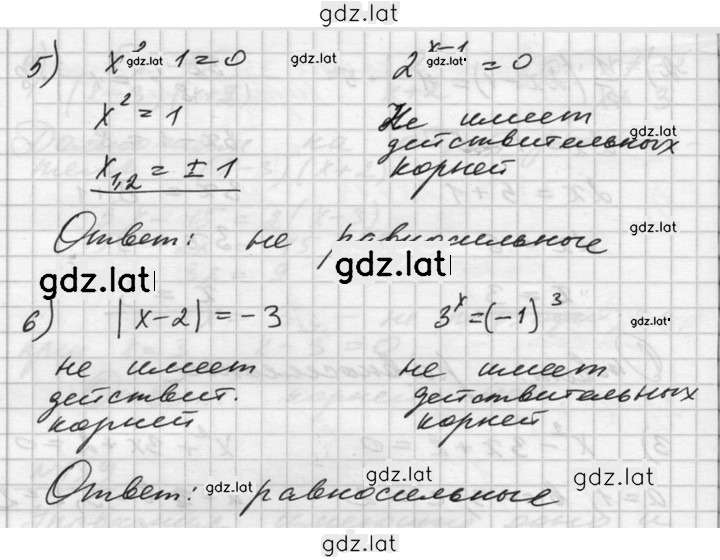 gdz.lat
5) x² gdz.lat 1 = 0 gdz.lat 2^(x-1) gdz.lat = 0
x² = 1 Не имеет
действительных gdz.lat
x₁,₂ = ± 1 корней
Ответ: не равносильные gdz.lat
gdz.lat gdz.lat
6) |x-2| = -3 3^x = (-1)^3 gdz.lat
не имеет не имеет
действит. действительных
корней корней
Ответ: gdz.lat равносильные gdz.lat gdz.lat
gdz.lat